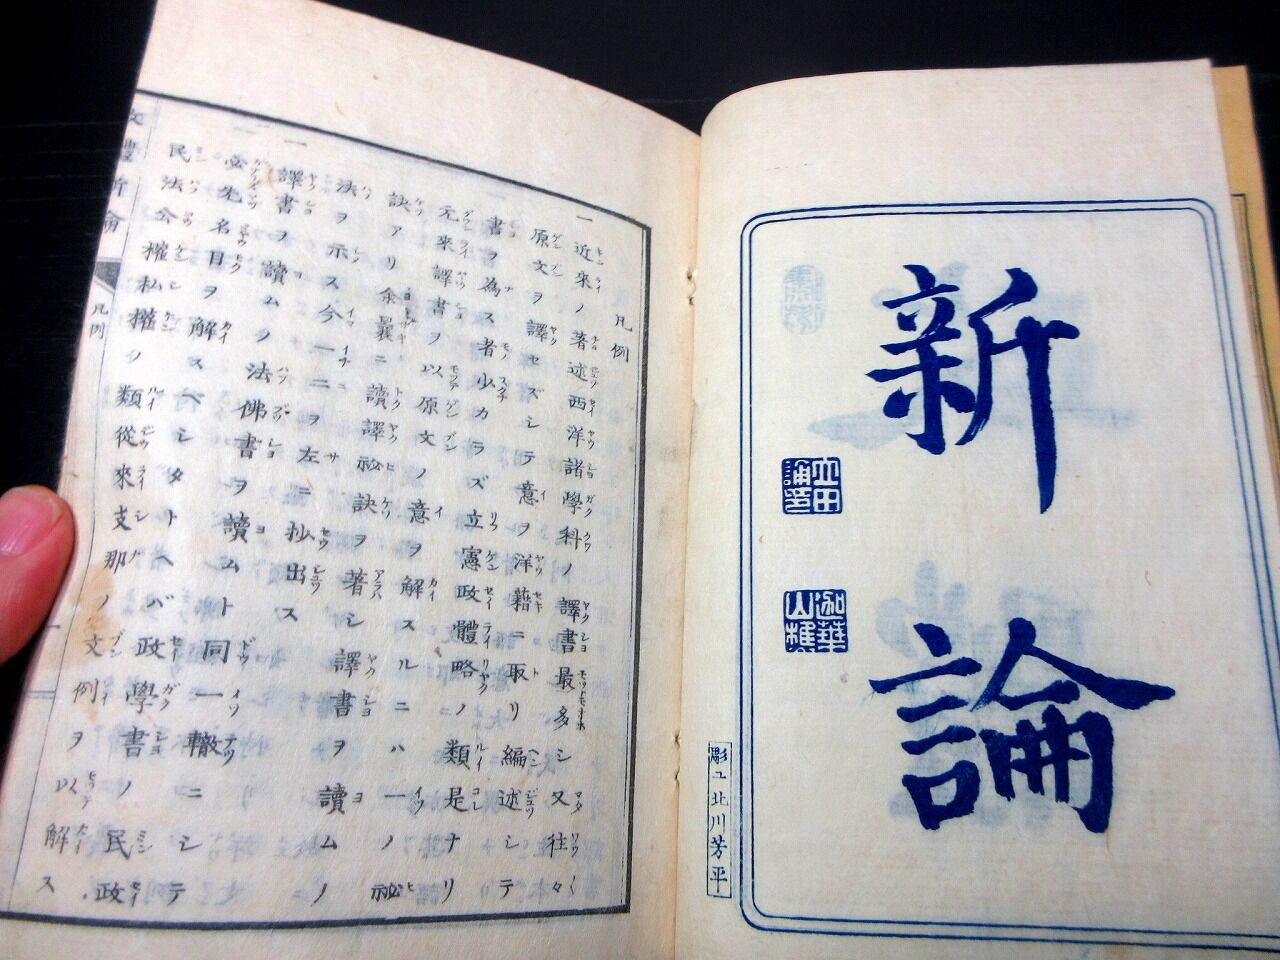 新論
彫工北川芳平
凡例
一近来ノ著述西洋諸學科ノ譯書最多シ又往々
原文ヲ譯セズシテ意ヲ洋藉ニ取リ編述シテ
書ヲ為ス者少カラズ立憲政體略ノ類是ナリ
元來譯書ヲ以原文ノ意ヲ解スルニハ一ノ祕
訣アリ余曩ニ讀譯祕訣ヲ著シ譯書ヲ讀ムノ
法ヲ示ス今一二ヲ左ニ抄出ス
一譯書ヲ讀ムノ法佛書ヲ讀ムト同一轍ニシテ
必先名目ヲ解スベシタトヘバ政學書ノ民政
民法公權私權ノ類從來支那ノ文例ヲ以解ス
文體新論
凡例